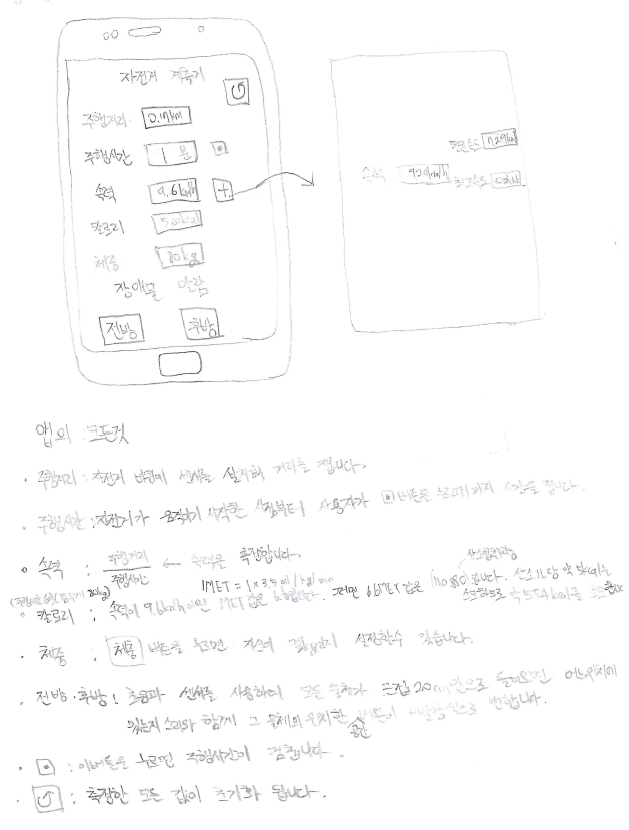 자전거 계측기
주행거리 0.17km
주행시간 1분
속력 9.6km/h +
칼로리 5.0kcal
체중 80kg
장애물 알람
전방 후방
평균속도
속력
최고속도
앱의 모든것
· 주행거리 : 자전거 바퀴에 센서를 설치해 거리를 잽니다.
· 주행시간 : 자전거가 움직이기 시작한 시점부터 사용자가 버튼을 누를때까지 시간을 잽니다.
· 속력 : 주행거리 / 주행시간 ← 속력을 측정합니다.
· 칼로리 : 속력이 9.6km/h이면 MET 값은 1MET = 1 x 3.5ml/kg/min
· 체중 : 체중 버튼을 누르면 자신의 설정할수 있습니다.
· 전방·후방 : 초음파 센서를 사용하여 모든 물체가 20cm 안으로 들어오면 어느위치에
있는지 소리와 함께 그 물체의 위치한 공간 버튼이 변합니다.
· : 이버튼을 누르면 주행시간이 멈춥니다.
· : 측정한 모든 값이 초기화 됩니다.